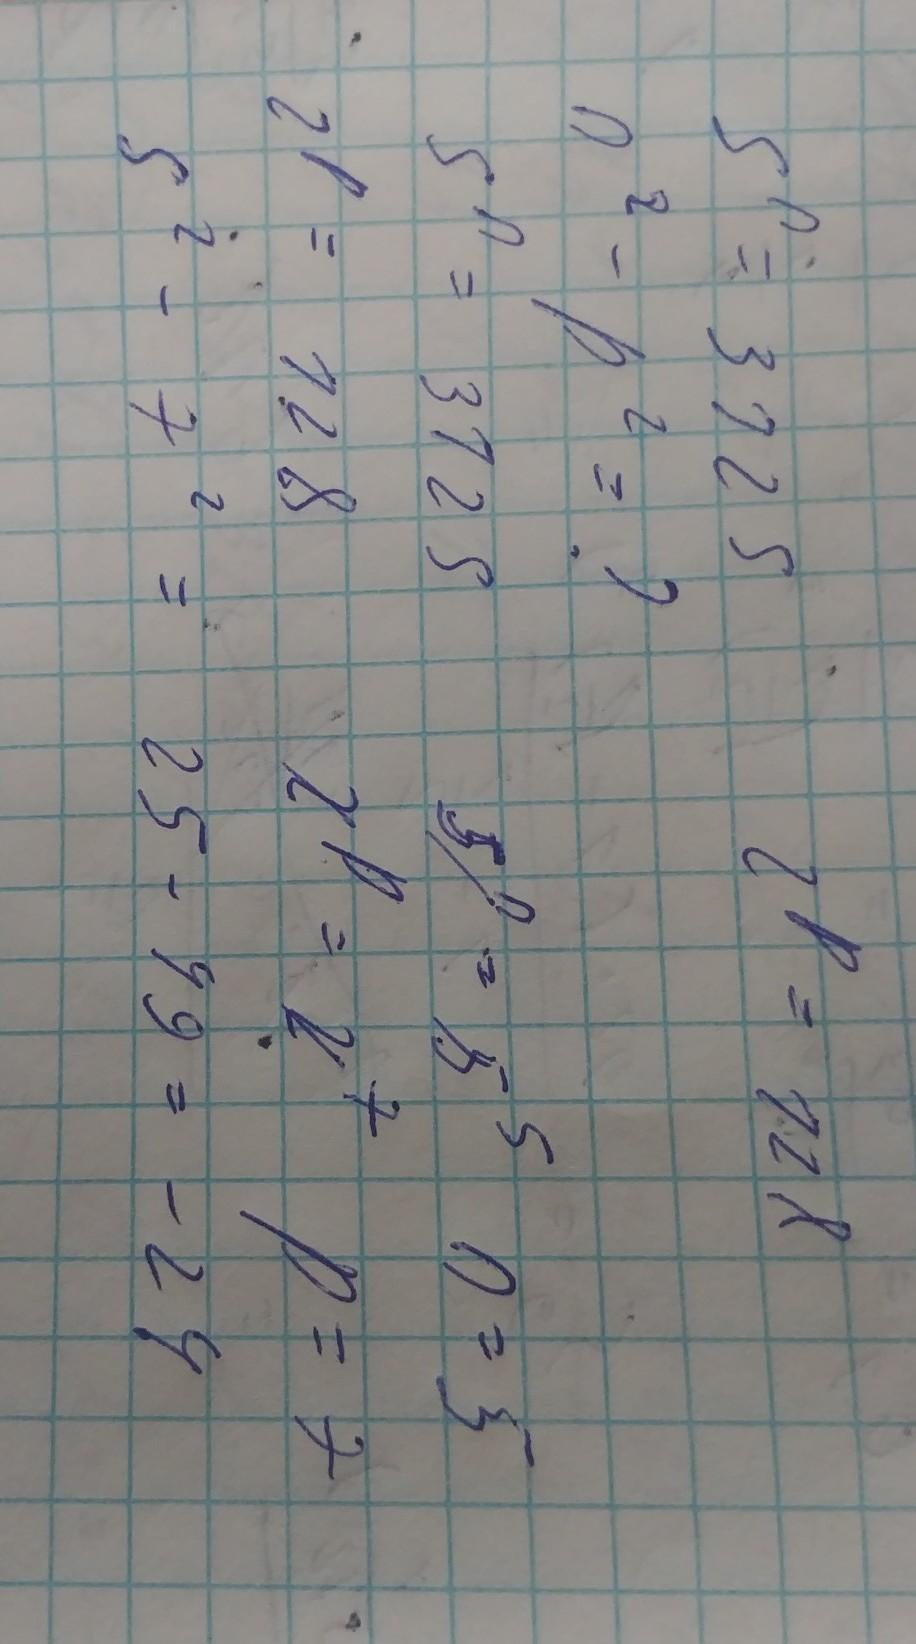 5ⁿ = 3125 2ᵖ = 128
n² - p² = ?
5ⁿ = 3125 5ⁿ = 5⁵ n = 5
2ᵖ = 128 2ᵖ = 2⁷ p = 7
5² - 7² = 25 - 49 = -24